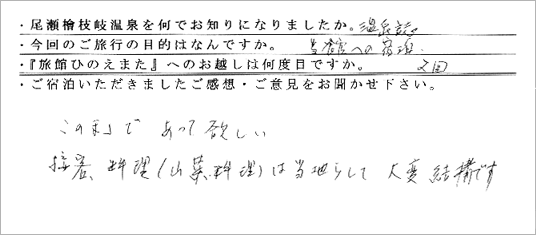 ・尾瀬檜枝岐温泉を何でお知りになりましたか。温泉誌
・今回のご旅行の目的はなんですか。 当旅館への宿泊.
・『旅館ひのえまた』へのお越しは何度目ですか。 2回
・ご宿泊いただきましたご感想・ご意見をお聞かせ下さい。
このままで あって欲しい
接客、料理(山菜料理)は当地らしくて 大変 結構です